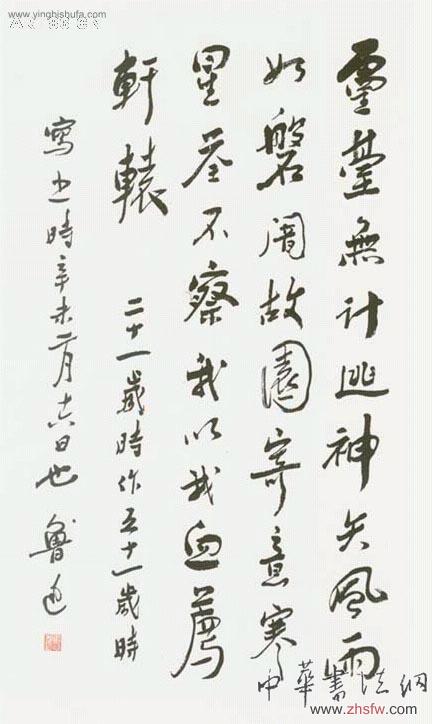 www.yingbishufa.com
靈臺無計逃神矢風雨
如磐闇故園寄意寒
星荃不察我以我血薦
軒轅 二十一歲時作五十一歲時
寫之時辛未二月十六日也 魯迅
中華書法網
www.zhsfw.com